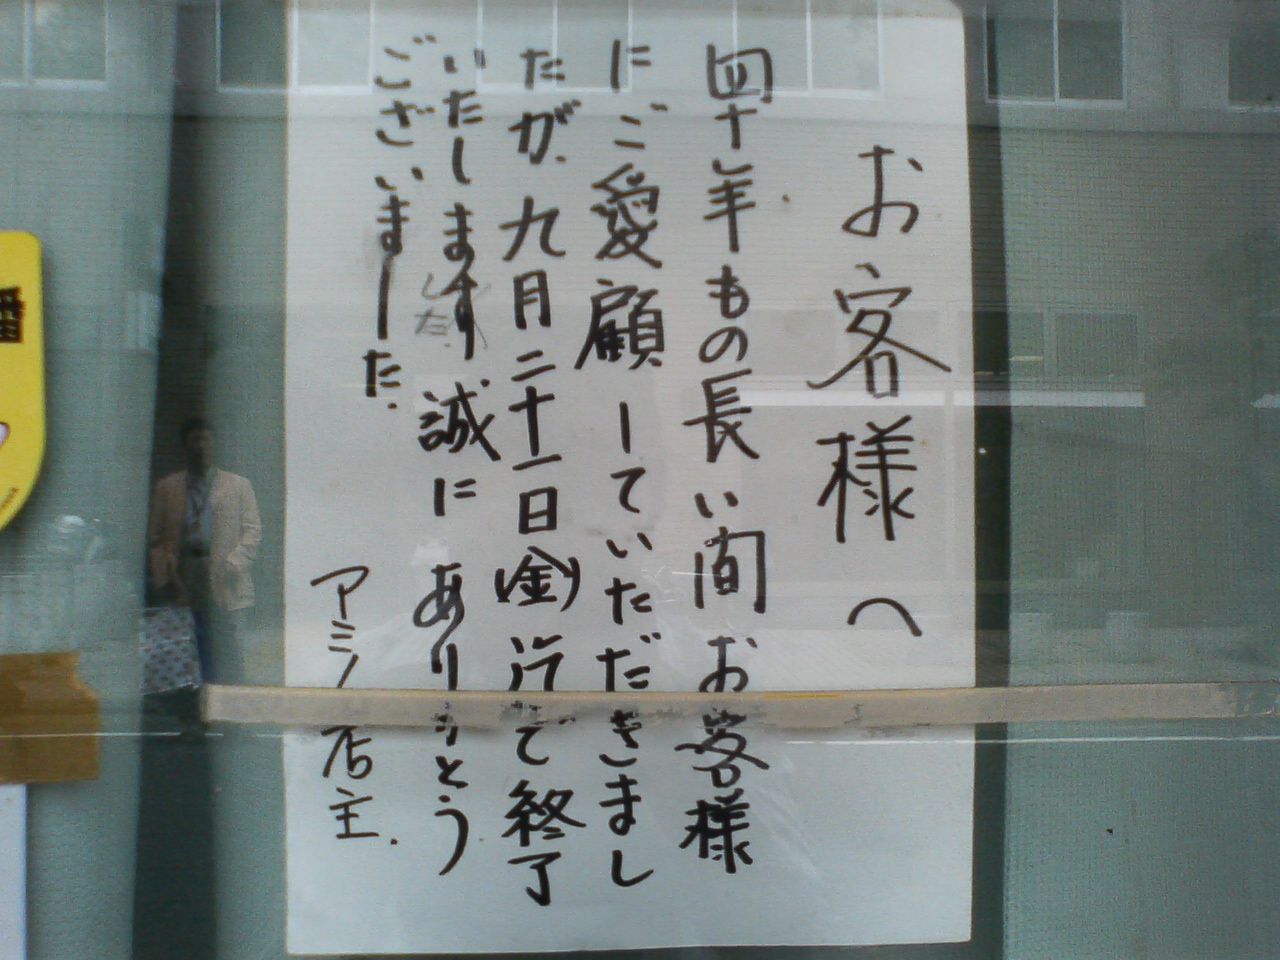 お客様へ
四十年もの長い間お客様
にご愛顧していただきまし
たが、九月二十一日(金)迄で終了
いたします誠にありがとう
した
ございました。
アミノ店主.
番